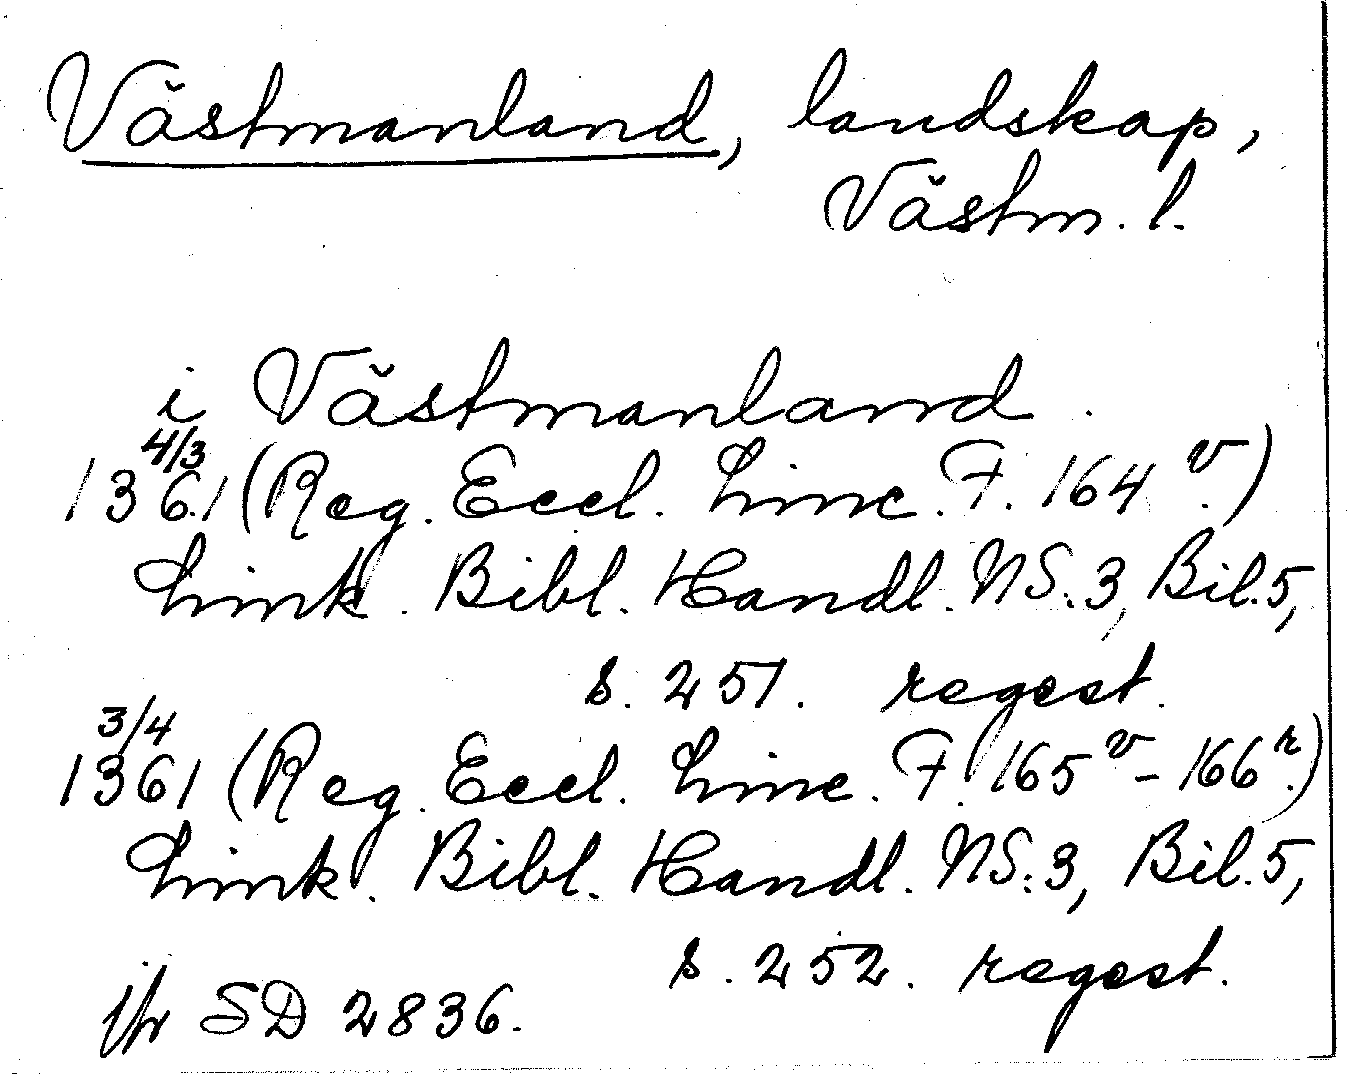 Västmanland, landskap,
Västm. l.
i Västmanland.
4/3
1361 (Reg. Eccl. Linc. F. 164 v.)
Link. Bibl. Handl. NS. 3, Bil. 5,
s. 251. regest.
3/4
1361 (Reg. Eccl. Linc. F. 165 v - 166 r.)
Link. Bibl. Handl. NS: 3, Bil. 5,
s. 252. regest.
jfr SD 2836.